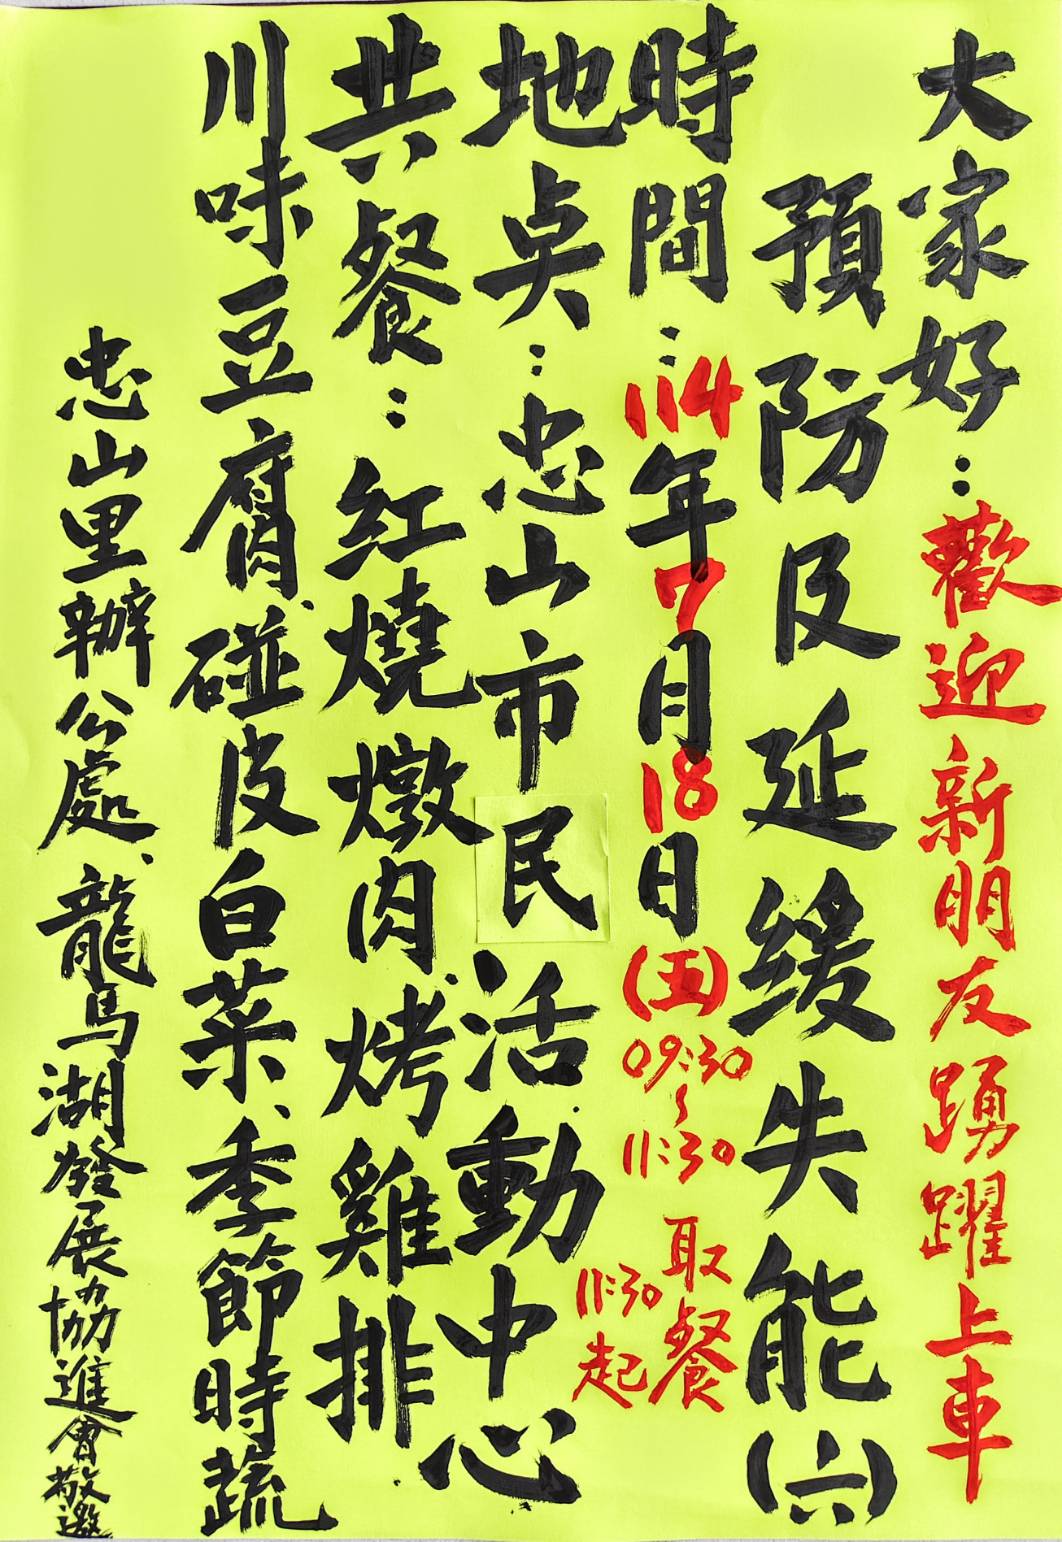 大家好：歡迎新朋友踴躍上車
預防及延缓失能(六)
時間：114年7月18日(五)09:30~11:30
取餐11:30起
地點：忠山市民活動中心
共餐：紅燒燉肉、烤雞排、
川味豆腐、碰皮白菜、季節時蔬
忠山里辦公處、龍馬湖發展協進會敬邀